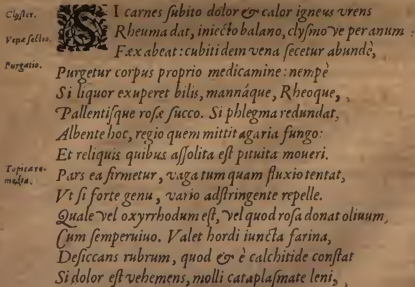 Clyster.
SI carnes subito dolor & calor igneus vrens
Venæ sectio.
Rheuma dat, iniecto balano, clysmo ve per anum
Fæx abeat: cubiti dem vena secetur abundè,
Purgatio.
Purgetur corpus proprio medicamine: nempè
Si liquor exuperet bilis, mannáque, Rheoque,
Pallentisque rosæ succo. Si phlegma redundat,
Albente hoc, regio quem mittit agaria fungo:
Et reliquis quibus assolita est pituita moueri.
Topica remedia.
Pars ea firmetur, vaga tum quam fluxio tentat,
Vt si forte genu, vario adstringente repelle.
Quale vel oxyrrhodum est, vel quod rosa donat oliuum,
Cum semperuiuo. Valet hordi iuncta farina,
Desiccans rubrum, quod & è calchitide constat
Si dolor est vehemens, molli cataplasmate leni,